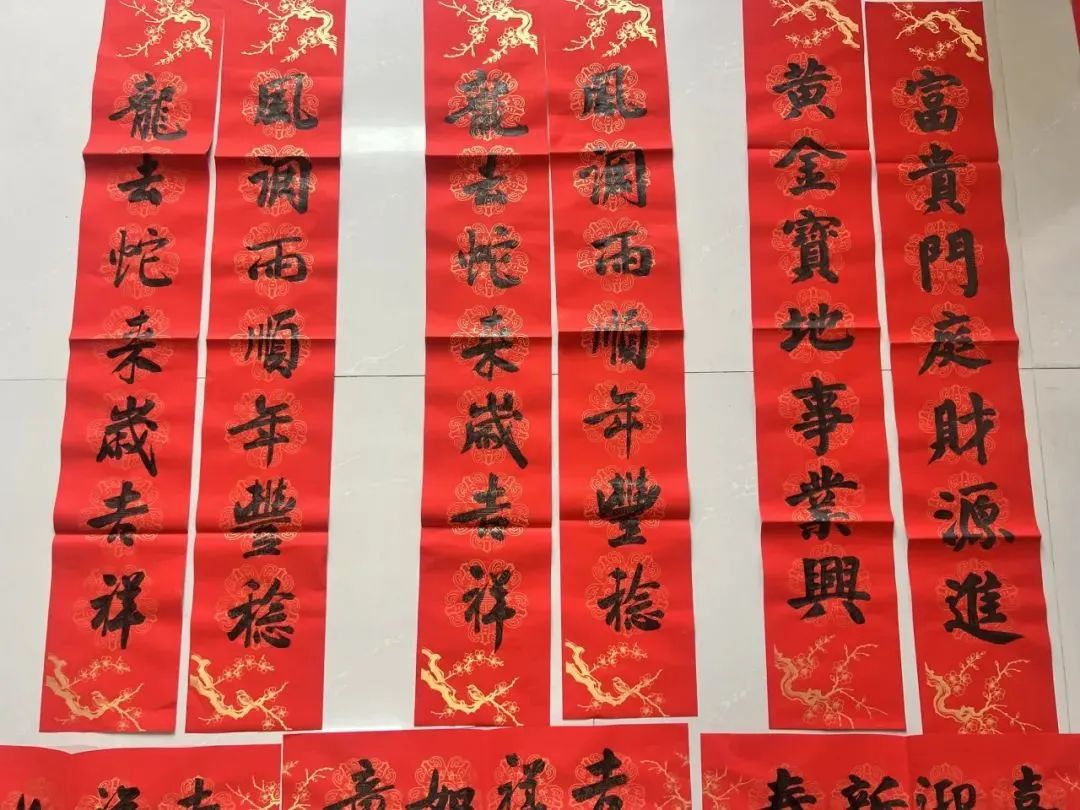 富貴門庭財源進
黄金寶地事業興
風調雨順年豐稔
龍去蛇来歲吉祥
風調雨順年豐稔
龍去蛇来歲吉祥
喜迎新春
吉祥如意